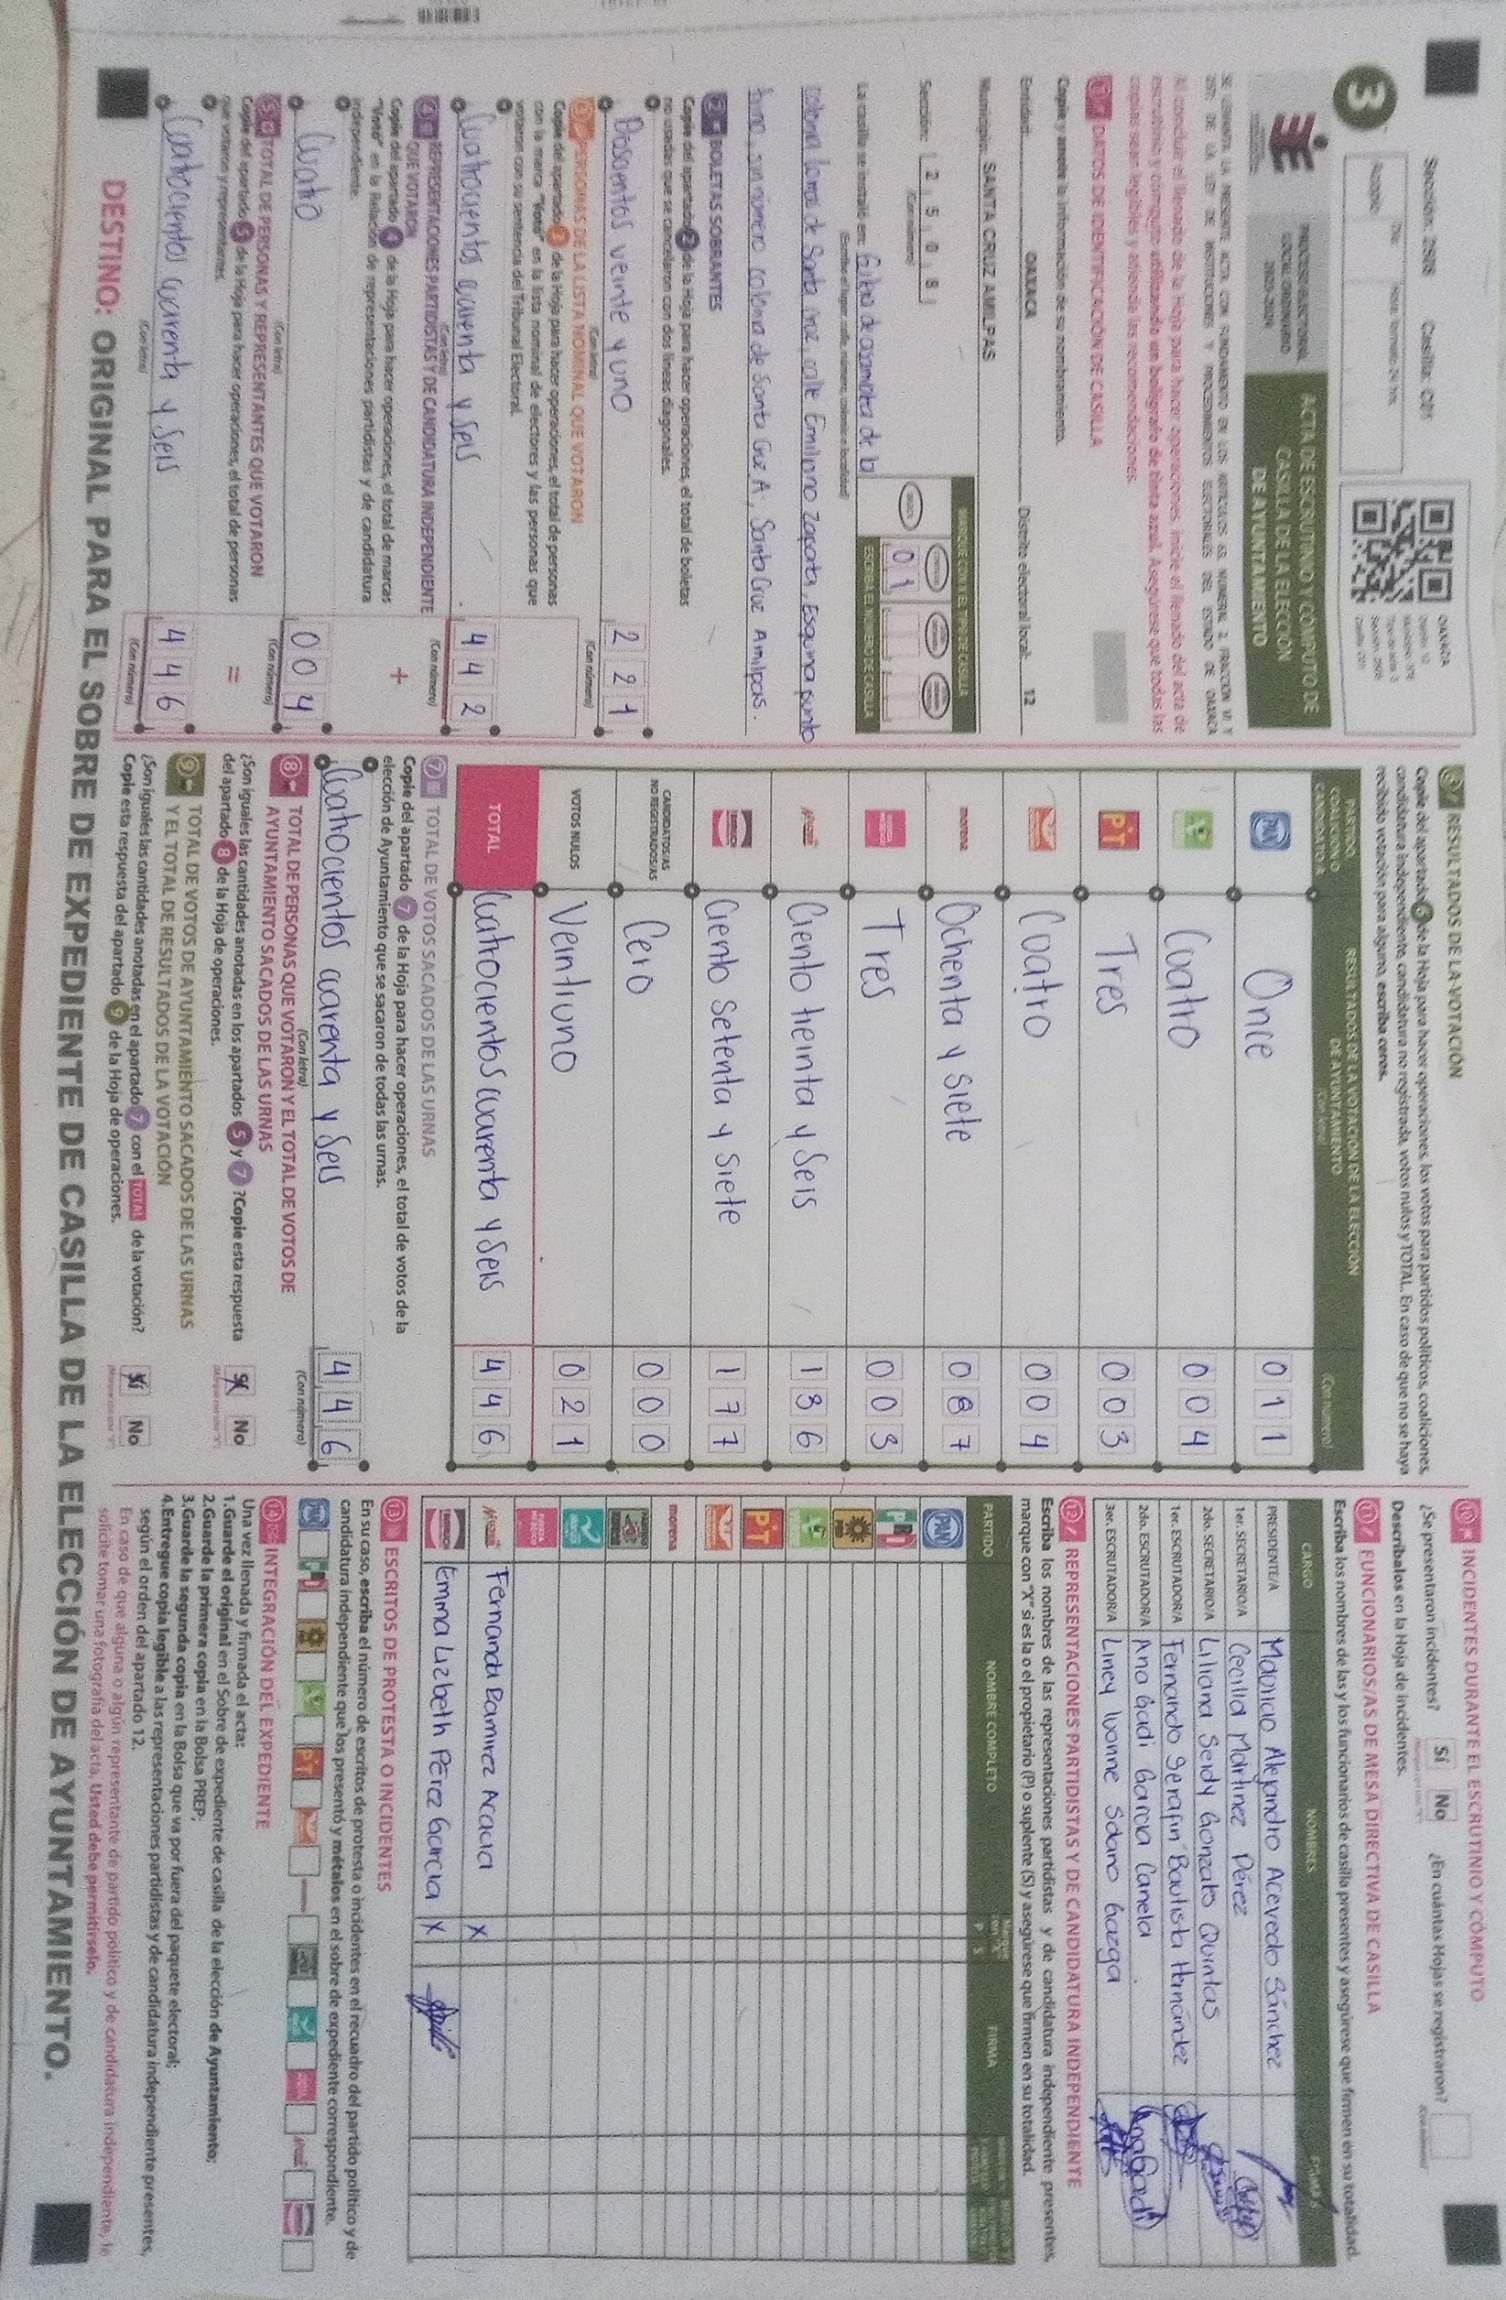 Sección: 2508 Casilla: C01
3
PROCESO ELECTORAL
LOCAL ORDINARIO
2023-2024
ACTA DE ESCRUTINIO Y CÓMPUTO DE
CASILLA DE LA ELECCIÓN
DE AYUNTAMIENTO
Al concluir el llenado de la Hoja para hacer operaciones, inicie el llenado del acta de
escrutinio y cómputo utilizando un bolígrafo de tinta azul. Asegúrese que todas las
copias sean legibles y atienda las recomendaciones.
1 DATOS DE IDENTIFICACIÓN DE CASILLA
Copie y anote la información de su nombramiento.
Entidad: OAXACA Distrito electoral local: 12
Municipio: SANTA CRUZ AMILPAS
Sección: 2 5 0 8
(Con número)
MARQUE CON X EL TIPO DE CASILLA
0 1
ESCRIBA EL NÚMERO DE CASILLA
La casilla se instaló en:
(Escriba el lugar, calle, número, colonia o localidad)
calle Emiliano Zapata, Esquina punto
sin número colonia de Santa Cruz A., Santa Cruz Amilpas.
2 BOLETAS SOBRANTES
Copie del apartado 2 de la Hoja para hacer operaciones, el total de boletas
no usadas que se cancelaron con dos líneas diagonales.
Doscientos veinte y uno 2 2 1
(Con letra) (Con número)
3 PERSONAS DE LA LISTA NOMINAL QUE VOTARON
Copie del apartado 3 de la Hoja para hacer operaciones, el total de personas
con la marca "Votó" en la lista nominal de electores y las personas que
votaron con su sentencia del Tribunal Electoral.
Cuatrocientos cuarenta y seis 4 4 2
(Con letra) (Con número)
4 REPRESENTACIONES PARTIDISTAS Y DE CANDIDATURA INDEPENDIENTE
QUE VOTARON
Copie del apartado 4 de la Hoja para hacer operaciones, el total de marcas
"Votó" en la Relación de representaciones partidistas y de candidatura
independiente.
+
Cuatro 0 0 4
(Con letra) (Con número)
5 TOTAL DE PERSONAS Y REPRESENTANTES QUE VOTARON
Copie del apartado 5 de la Hoja para hacer operaciones, el total de personas
que votaron y representantes.
=
Cuatrocientos cuarenta y seis 4 4 6
(Con letra) (Con número)
6 RESULTADOS DE LA VOTACIÓN
Copie del apartado 6 de la Hoja para hacer operaciones, los votos para partidos políticos, coaliciones,
candidatura independiente, candidatura no registrada, votos nulos y TOTAL. En caso de que no se haya
recibido votación para alguno, escriba ceros.
PARTIDO
COALICIÓN O
CANDIDATO/A
RESULTADOS DE LA VOTACIÓN DE LA ELECCIÓN
DE AYUNTAMIENTO
(Con letra) (Con número)
PAN Once 0 1 1
Cuatro 0 0 4
PT Tres 0 0 3
Cuatro 0 0 4
morena Ochenta y siete 0 8 7
Tres 0 0 3
Ciento treinta y seis 1 3 6
Ciento setenta y siete 1 7 7
CANDIDATOS/AS
NO REGISTRADOS/AS Cero 0 0 0
VOTOS NULOS Veintiuno 0 2 1
TOTAL Cuatrocientos cuarenta y seis 4 4 6
7 TOTAL DE VOTOS SACADOS DE LAS URNAS
Copie del apartado 7 de la Hoja para hacer operaciones, el total de votos de la
elección de Ayuntamiento que se sacaron de todas las urnas.
Cuatrocientos cuarenta y seis 4 4 6
(Con letra) (Con número)
8 TOTAL DE PERSONAS QUE VOTARON Y EL TOTAL DE VOTOS DE
AYUNTAMIENTO SACADOS DE LAS URNAS
¿Son iguales las cantidades anotadas en los apartados 5 y 7 ?Copie esta respuesta
del apartado 8 de la Hoja de operaciones. Sí No
9 TOTAL DE VOTOS DE AYUNTAMIENTO SACADOS DE LAS URNAS
Y EL TOTAL DE RESULTADOS DE LA VOTACIÓN
¿Son iguales las cantidades anotadas en el apartado 7 con el TOTAL de la votación?
Copie esta respuesta del apartado 9 de la Hoja de operaciones. Sí No
10 INCIDENTES DURANTE EL ESCRUTINIO Y CÓMPUTO
¿Se presentaron incidentes? Sí No ¿En cuántas Hojas se registraron?
Descríbalos en la Hoja de incidentes.
11 FUNCIONARIOS/AS DE MESA DIRECTIVA DE CASILLA
Escriba los nombres de las y los funcionarios de casilla presentes y asegúrese que firmen en su totalidad.
CARGO NOMBRES FIRMAS
PRESIDENTE/A Mauricio Alejandro Acevedo Sánchez
1er. SECRETARIO/A Cecilia Martinez Pérez
2do. SECRETARIO/A Liliana Seidy Gonzalo Quintas
1er. ESCRUTADOR/A Fernando Serafin Bautista Hernández
2do. ESCRUTADOR/A Ana Gadi Garcia Canela
3er. ESCRUTADOR/A Liney Ivonne Solano Gazga
12 REPRESENTACIONES PARTIDISTAS Y DE CANDIDATURA INDEPENDIENTE
Escriba los nombres de las representaciones partidistas y de candidatura independiente presentes,
marque con "X" si es la o el propietario (P) o suplente (S) y asegúrese que firmen en su totalidad.
PARTIDO NOMBRE COMPLETO P S FIRMA
PAN
PRI
PRD
PT
morena
Fernanda Ramirez Acacia X
Emma Lizbeth Pérez Garcia X
13 ESCRITOS DE PROTESTA O INCIDENTES
En su caso, escriba el número de escritos de protesta o incidentes en el recuadro del partido político y de
candidatura independiente que los presentó y métalos en el sobre de expediente correspondiente.
14 INTEGRACIÓN DEL EXPEDIENTE
Una vez llenada y firmada el acta:
1.Guarde el original en el Sobre de expediente de casilla de la elección de Ayuntamiento;
2.Guarde la primera copia en la Bolsa PREP;
3.Guarde la segunda copia en la Bolsa que va por fuera del paquete electoral;
4.Entregue copia legible a las representaciones partidistas y de candidatura independiente presentes,
según el orden del apartado 12.
En caso de que alguna o algún representante de partido político y de candidatura independiente, le
solicite tomar una fotografía del acta, Usted debe permitírselo.
DESTINO: ORIGINAL PARA EL SOBRE DE EXPEDIENTE DE CASILLA DE LA ELECCIÓN DE AYUNTAMIENTO.